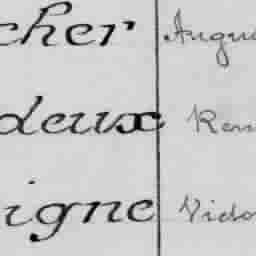 cher Augu
deux Ren
igne Vido